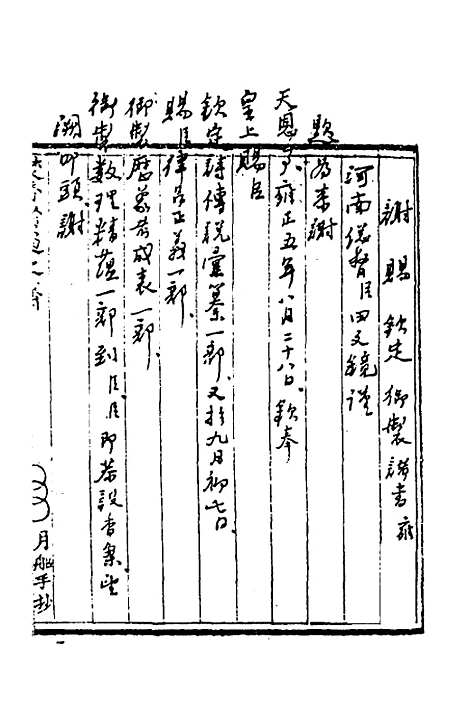 謝賜欽定御製諸書疏
河南總督臣田文鏡謹
題為恭謝
天恩事雍正五年八月二十八日欽奉
皇上賜臣
欽定詩傳說彙纂一部又於九月初七日
賜臣律呂正義一部
御製曆象考成表一部
御製數理精蘊一部到臣臣即恭設香案望
闕叩頭謝
月船手抄